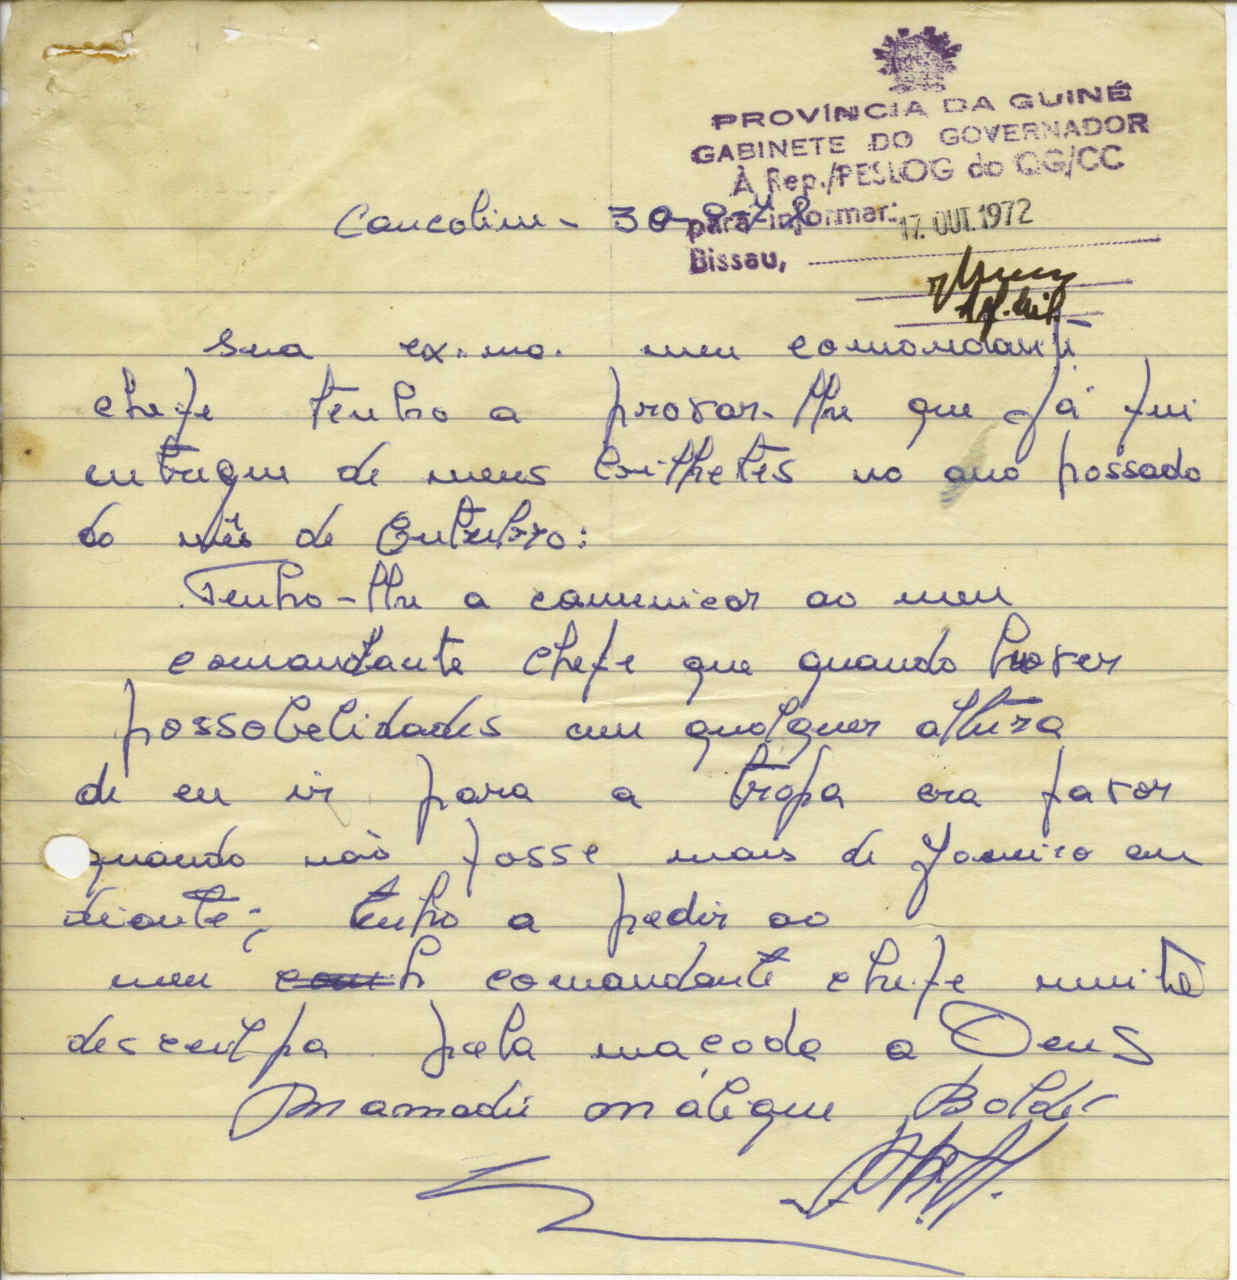 PROVÍNCIA DA GUINÉ
GABINETE DO GOVERNADOR
À Rep./PESLOG do QG/CC
para informar:
17. OUT. 1972
Bissau,
Cancolim - 30-8-72
Sua ex.mo. meu comandante
chefe tenho a provar-lhe que já fui
entregue de meus bilhetes no ano passado
do mês de Outubro:
Tenho-lhe a comunicar ao meu
comandante chefe que quando hover
possobelidades em qualquer altura
de eu ir para a tropa era favor
quando não fosse mais de Janeiro em
diante; tenho a pedir ao
meu comandante chefe muita
desculpa pela maçada a Deus
Mamadú Máligue Baldé